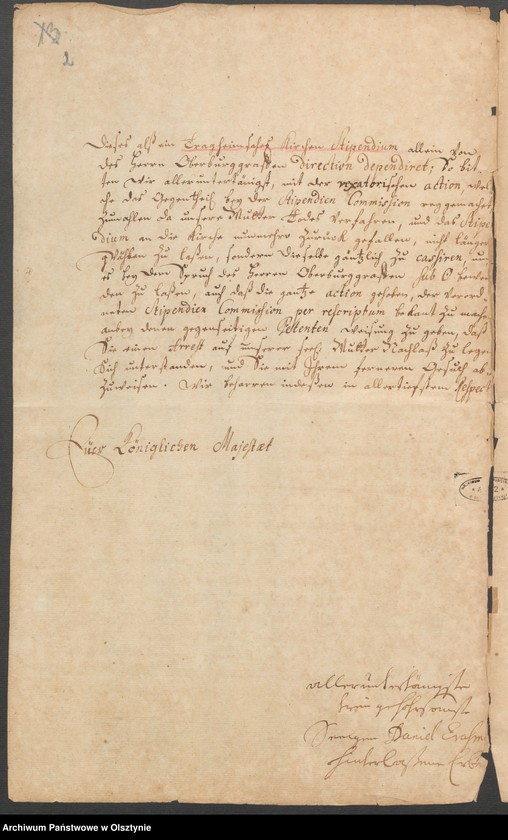 2
Dieses alß ein Tragheimsches Kirchen Stipendium allein von
des Herrn Oberburggraffen direction dependiret; So bit
ten wir allerunterthänigst, mit der vexatorischen action, wel
che das Gegentheil bey der Stipendien Commission
zumahlen da unsere Mutter Todes verfahren, und das Stipen
dium an die Kirche nunmehro zurück gefallen, nicht länger
zu laßen, sondern dieselbe gäntzlich zu cassiren, und
es bey dem Spruch des Herren Oberburggraffen sub O
den zu laßen, auch daß die gantze action gehoben, der verord
neten Stipendien Commission per rescriptum bekant zu mach
anbey denen gegenseitigen Weisung zu geben, daß
Sie einen Arrest auf unserer seel. Mutter Nachlaß zu legen
Sich unterstanden, und Sie mit Ihrem ferneren Gesuch ab
zuweisen. Wir beharren indeßen in allertiefstem Respect
Euer Königlichen Majestät
allerunterthänigste
treu gehorsamste
Daniel
hinterlaßene Erben
Archiwum Państwowe w Olsztynie